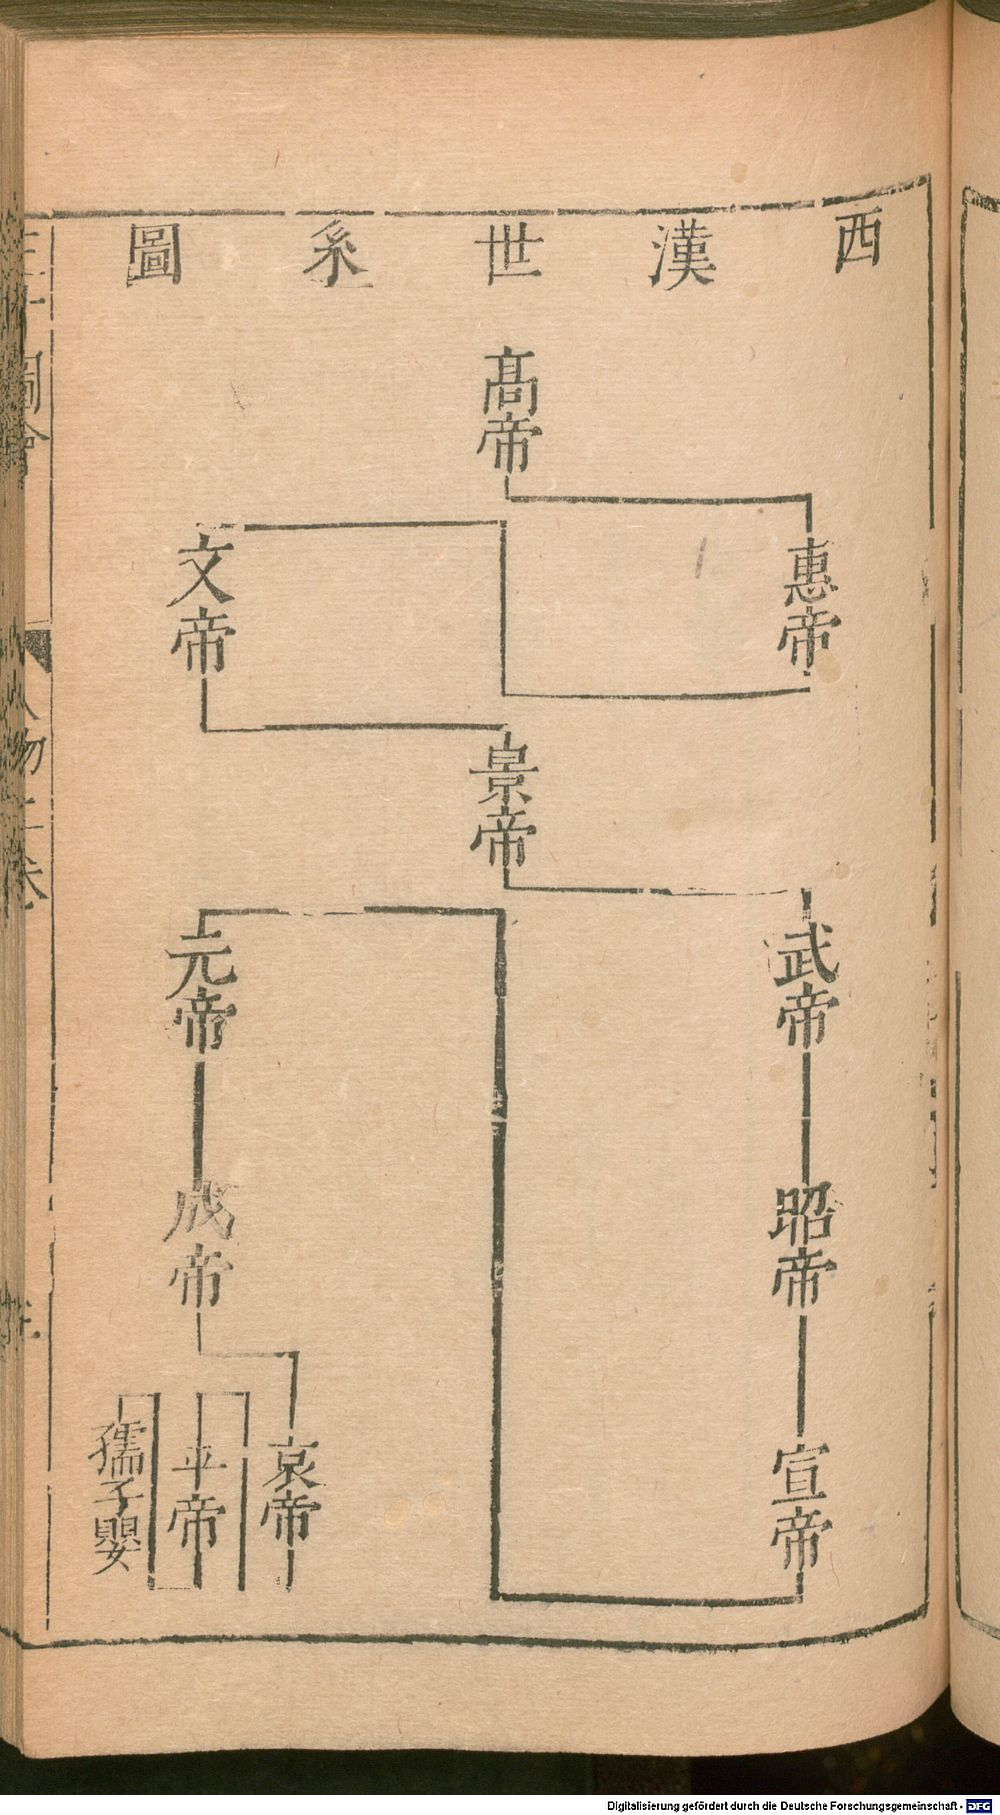 西漢世系圖
高帝
惠帝
文帝
景帝
武帝
昭帝
宣帝
元帝
成帝
哀帝
平帝
孺子嬰
圖會
人物二卷
Digitalisierung gefördert durch die Deutsche Forschungsgemeinschaft - DFG